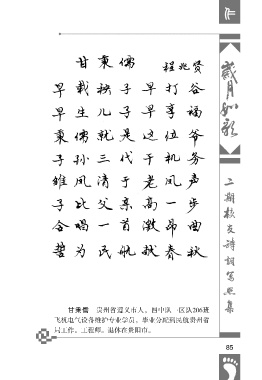 作
岁月如歌
二期校友诗词写照集
甘秉儒 程兆贤
早栽秧子早打谷
早生儿子早享福
秉儒就是这位爷
子孙三代干机务
雏凤清于老凤声
子比父亲高一步
合唱一首激昂曲
誓为民航献春秋
甘秉儒 贵州省遵义市人。四中队一区队206班
飞机电气设备维护专业学员。毕业分配到民航贵州省
局工作。工程师。退休在贵阳市。
85